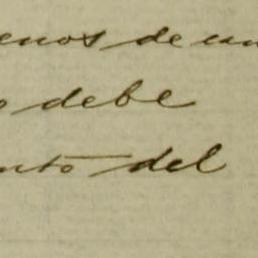 enos de un
o debe
nto del